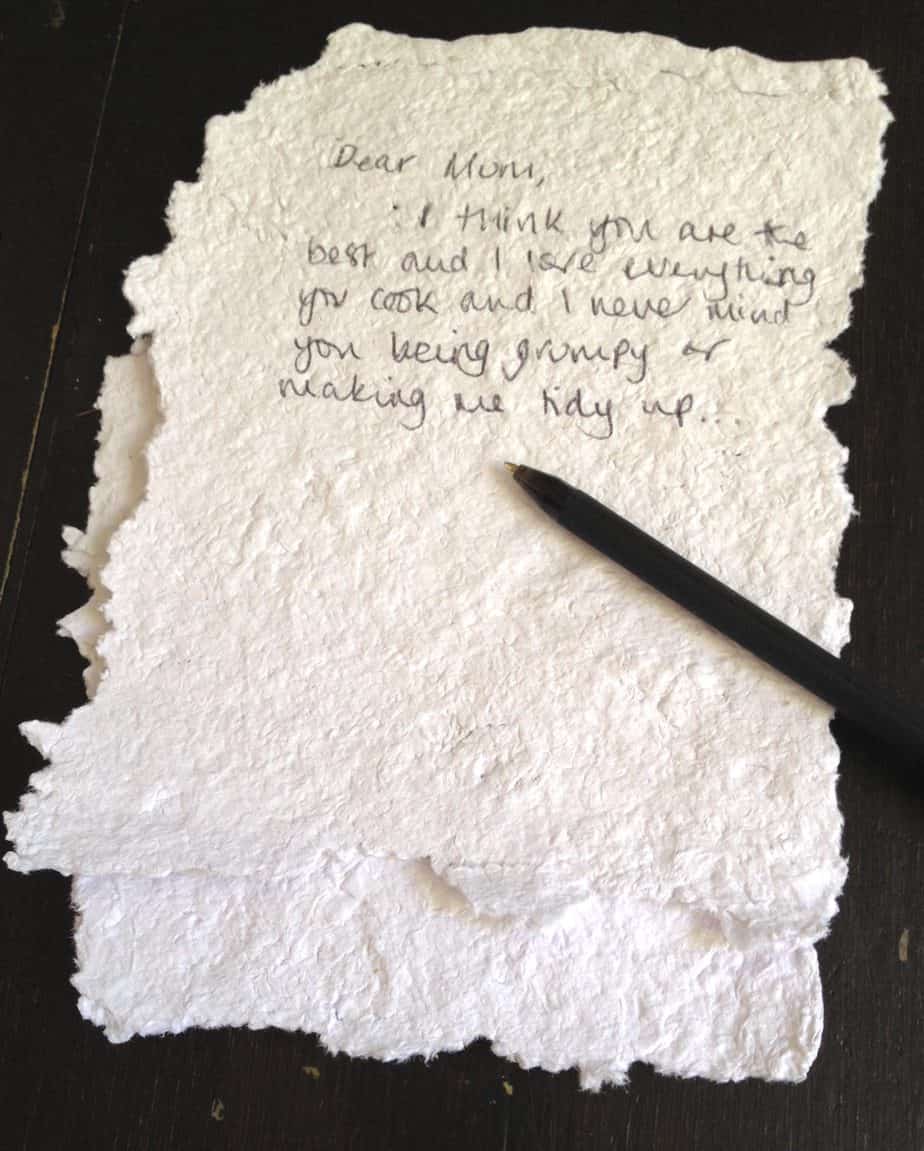 Dear Mum,
I think you are the
best and I love everything
you cook and I never mind
you being grumpy or
making me tidy up...